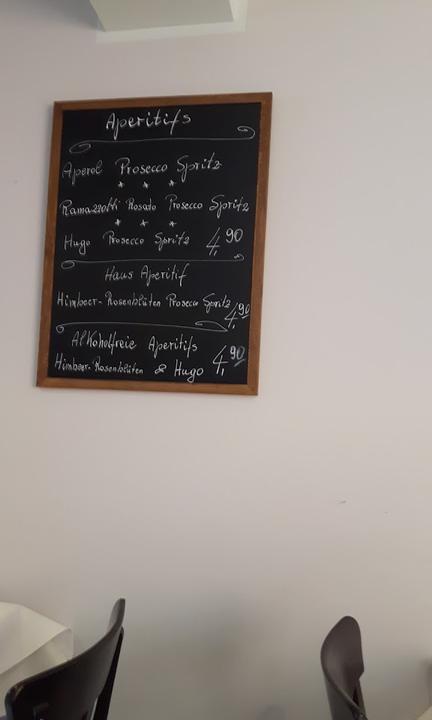 Aperitifs
Aperol Prosecco Spritz
* * *
Ramazzotti Rosato Prosecco Spritz
* * *
Hugo Prosecco Spritz 4,90
Haus Aperitif
Himbeer-Rosenblüten Prosecco Spritz
4,90
Alkoholfreie Aperitifs
Himbeer-Rosenblüten & Hugo 4,90